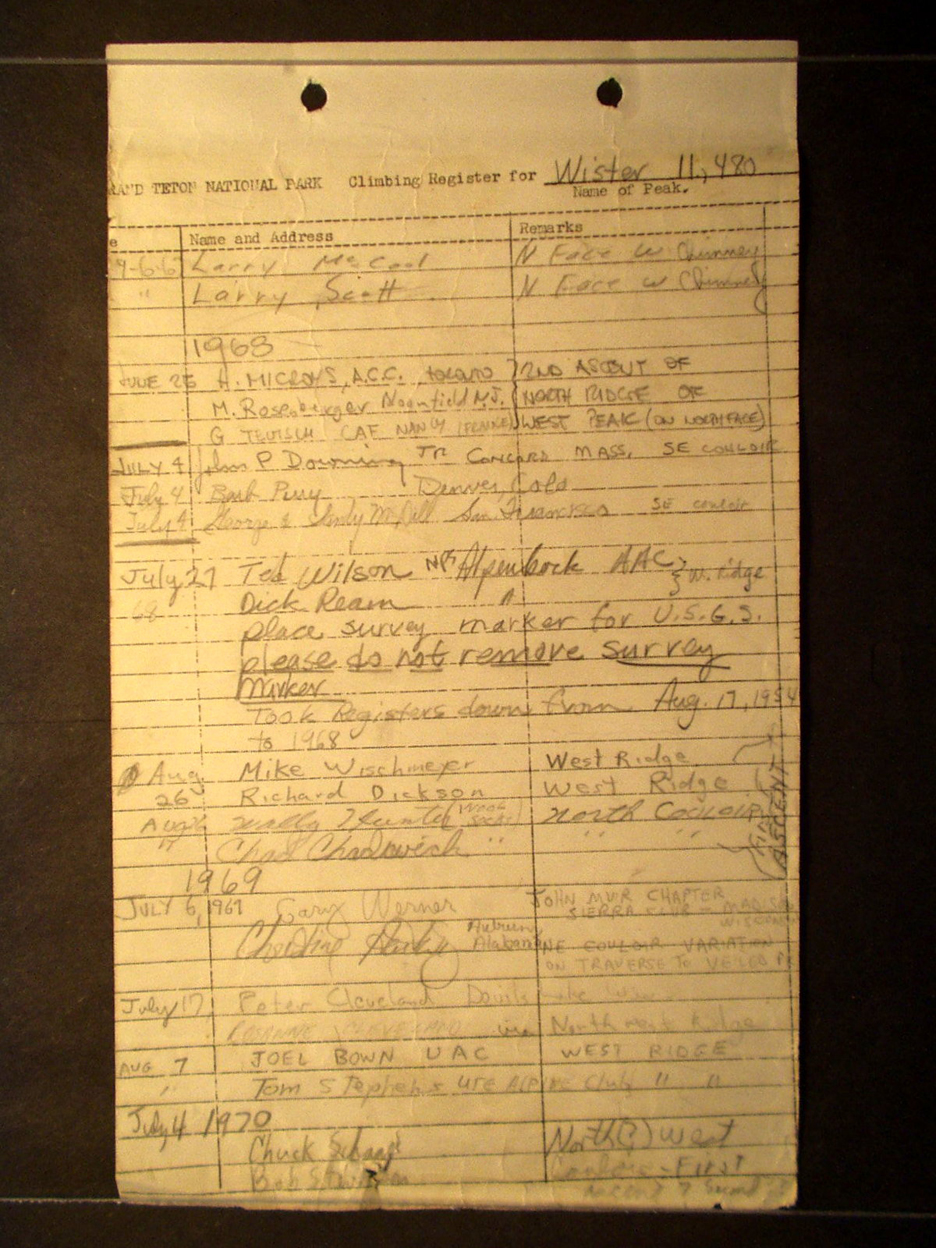 RAND TETON NATIONAL PARK Climbing Register for Wister 11,480
Name of Peak.
e Name and Address Remarks
9-6-6 Larry McCool N Face W Chimney
" Larry Scott N Face W Chimney
1968
JUNE 25 H. MICROYS, A.C.C. TORONTO 2ND ASCENT OF
M. Rosenberger N.J. NORTH RIDGE OF
G TEUTSCH CAF NANCY (FRANCE) WEST PEAK (ON NORTH FACE)
JULY 4 John P Downing JR CONCORD MASS, SE COULOIR
July 4 Barb Perry Denver, Colo
July 4 George & Sandy San Francisco SE couloir
July 27 Ted Wilson Alpenbock AAC } W. Ridge
68 Dick Ream "
place survey marker for U.S.G.S.
please do not remove survey
marker
Took Registers down from Aug. 17, 1954
to 1968
Aug Mike Wischmeyer West Ridge
26 Richard Dickson West Ridge
Aug Wally Hunter North Couloir
Chad Chadwick " " "
(FIRST ASCENT)
1969
JULY 6, 1969 Gary Werner JOHN MUIR CHAPTER
SIERRA CLUB - MADISON
WISCONSIN
Christine Auburn
Alabama NE COULOIR VARIATION
ON TRAVERSE TO VEILED PK
July 17 Peter Cleveland Devils Lake Wis
ROSANNE CLEVELAND via Northwest Ridge
AUG 7 JOEL BOWN UAC WEST RIDGE
" Tom Stephens UTE ALPINE Club " "
July 4 1970
Chuck Schaap North(?) West
Bob First